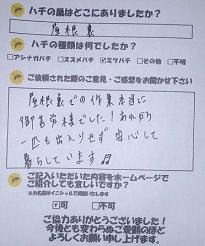 ハチの巣はどこにありましたか？
屋根裏
ハチの種類は何でしたか？
□アシナガバチ □スズメバチ ☑ミツバチ □その他 □不明
ご依頼された際のご意見・ご感想をお聞かせ下さい
屋根裏での作業本当に
御苦労様でした！あれから
一匹も出入りせず安心して
暮らしています♫
ご記入いただいた内容をホームページで
ご紹介しても宜しいですか？
※お名前はイニシャルで掲載いたします
☑可 □不可
ご協力ありがとうございました！
今後とも変わらぬご愛顧のほど
よろしくお願い申し上げます。